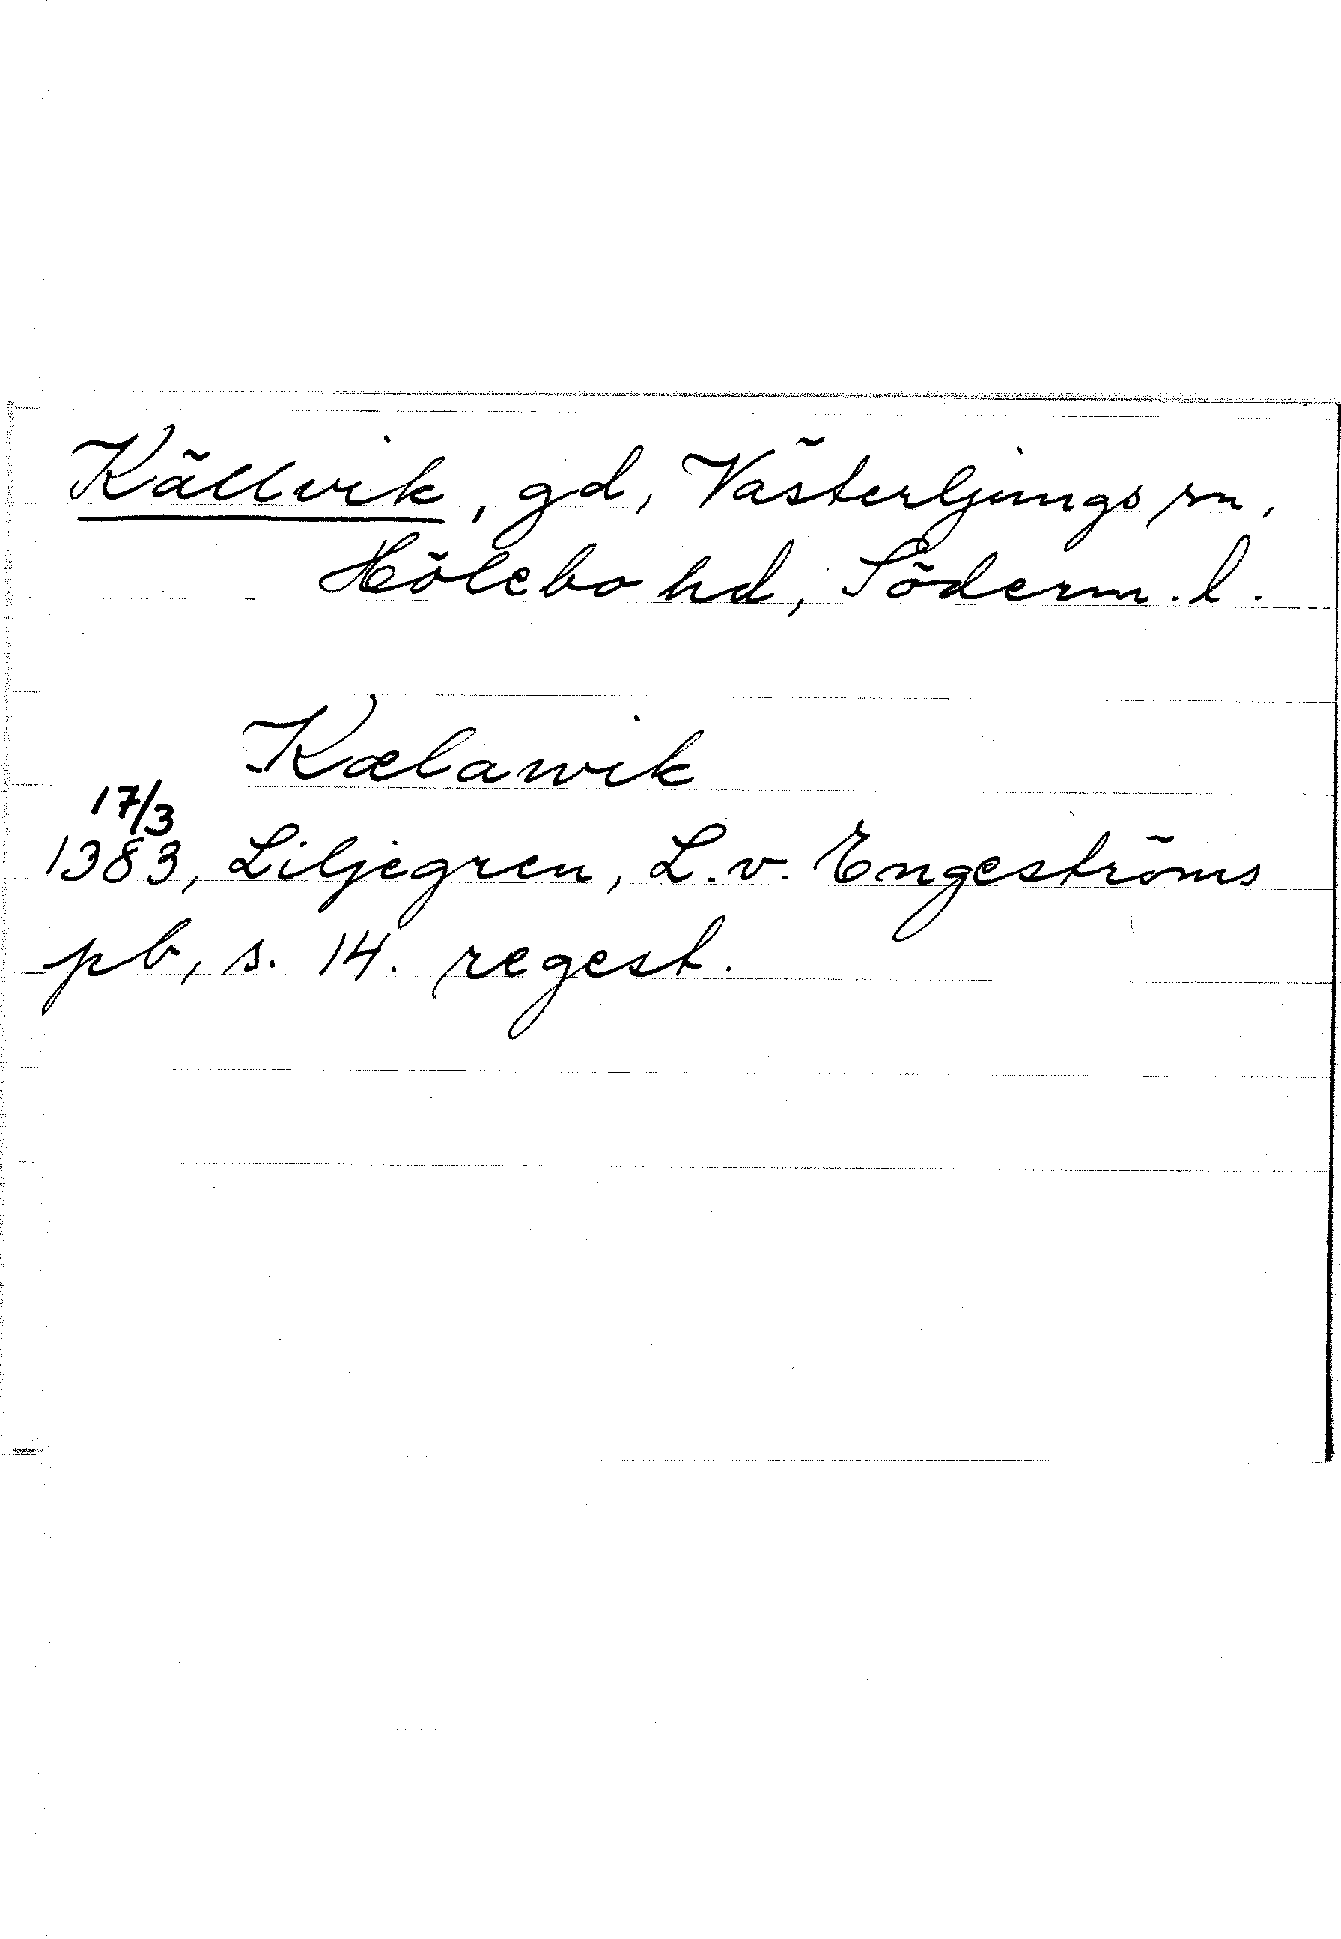 Källvik, gd, Västerljungs sn,
Hölebo hd, Söderm. l.
Kælawik
17/3
1383, Liljegren, L. v. Engeströms
pb, s. 14. regest.